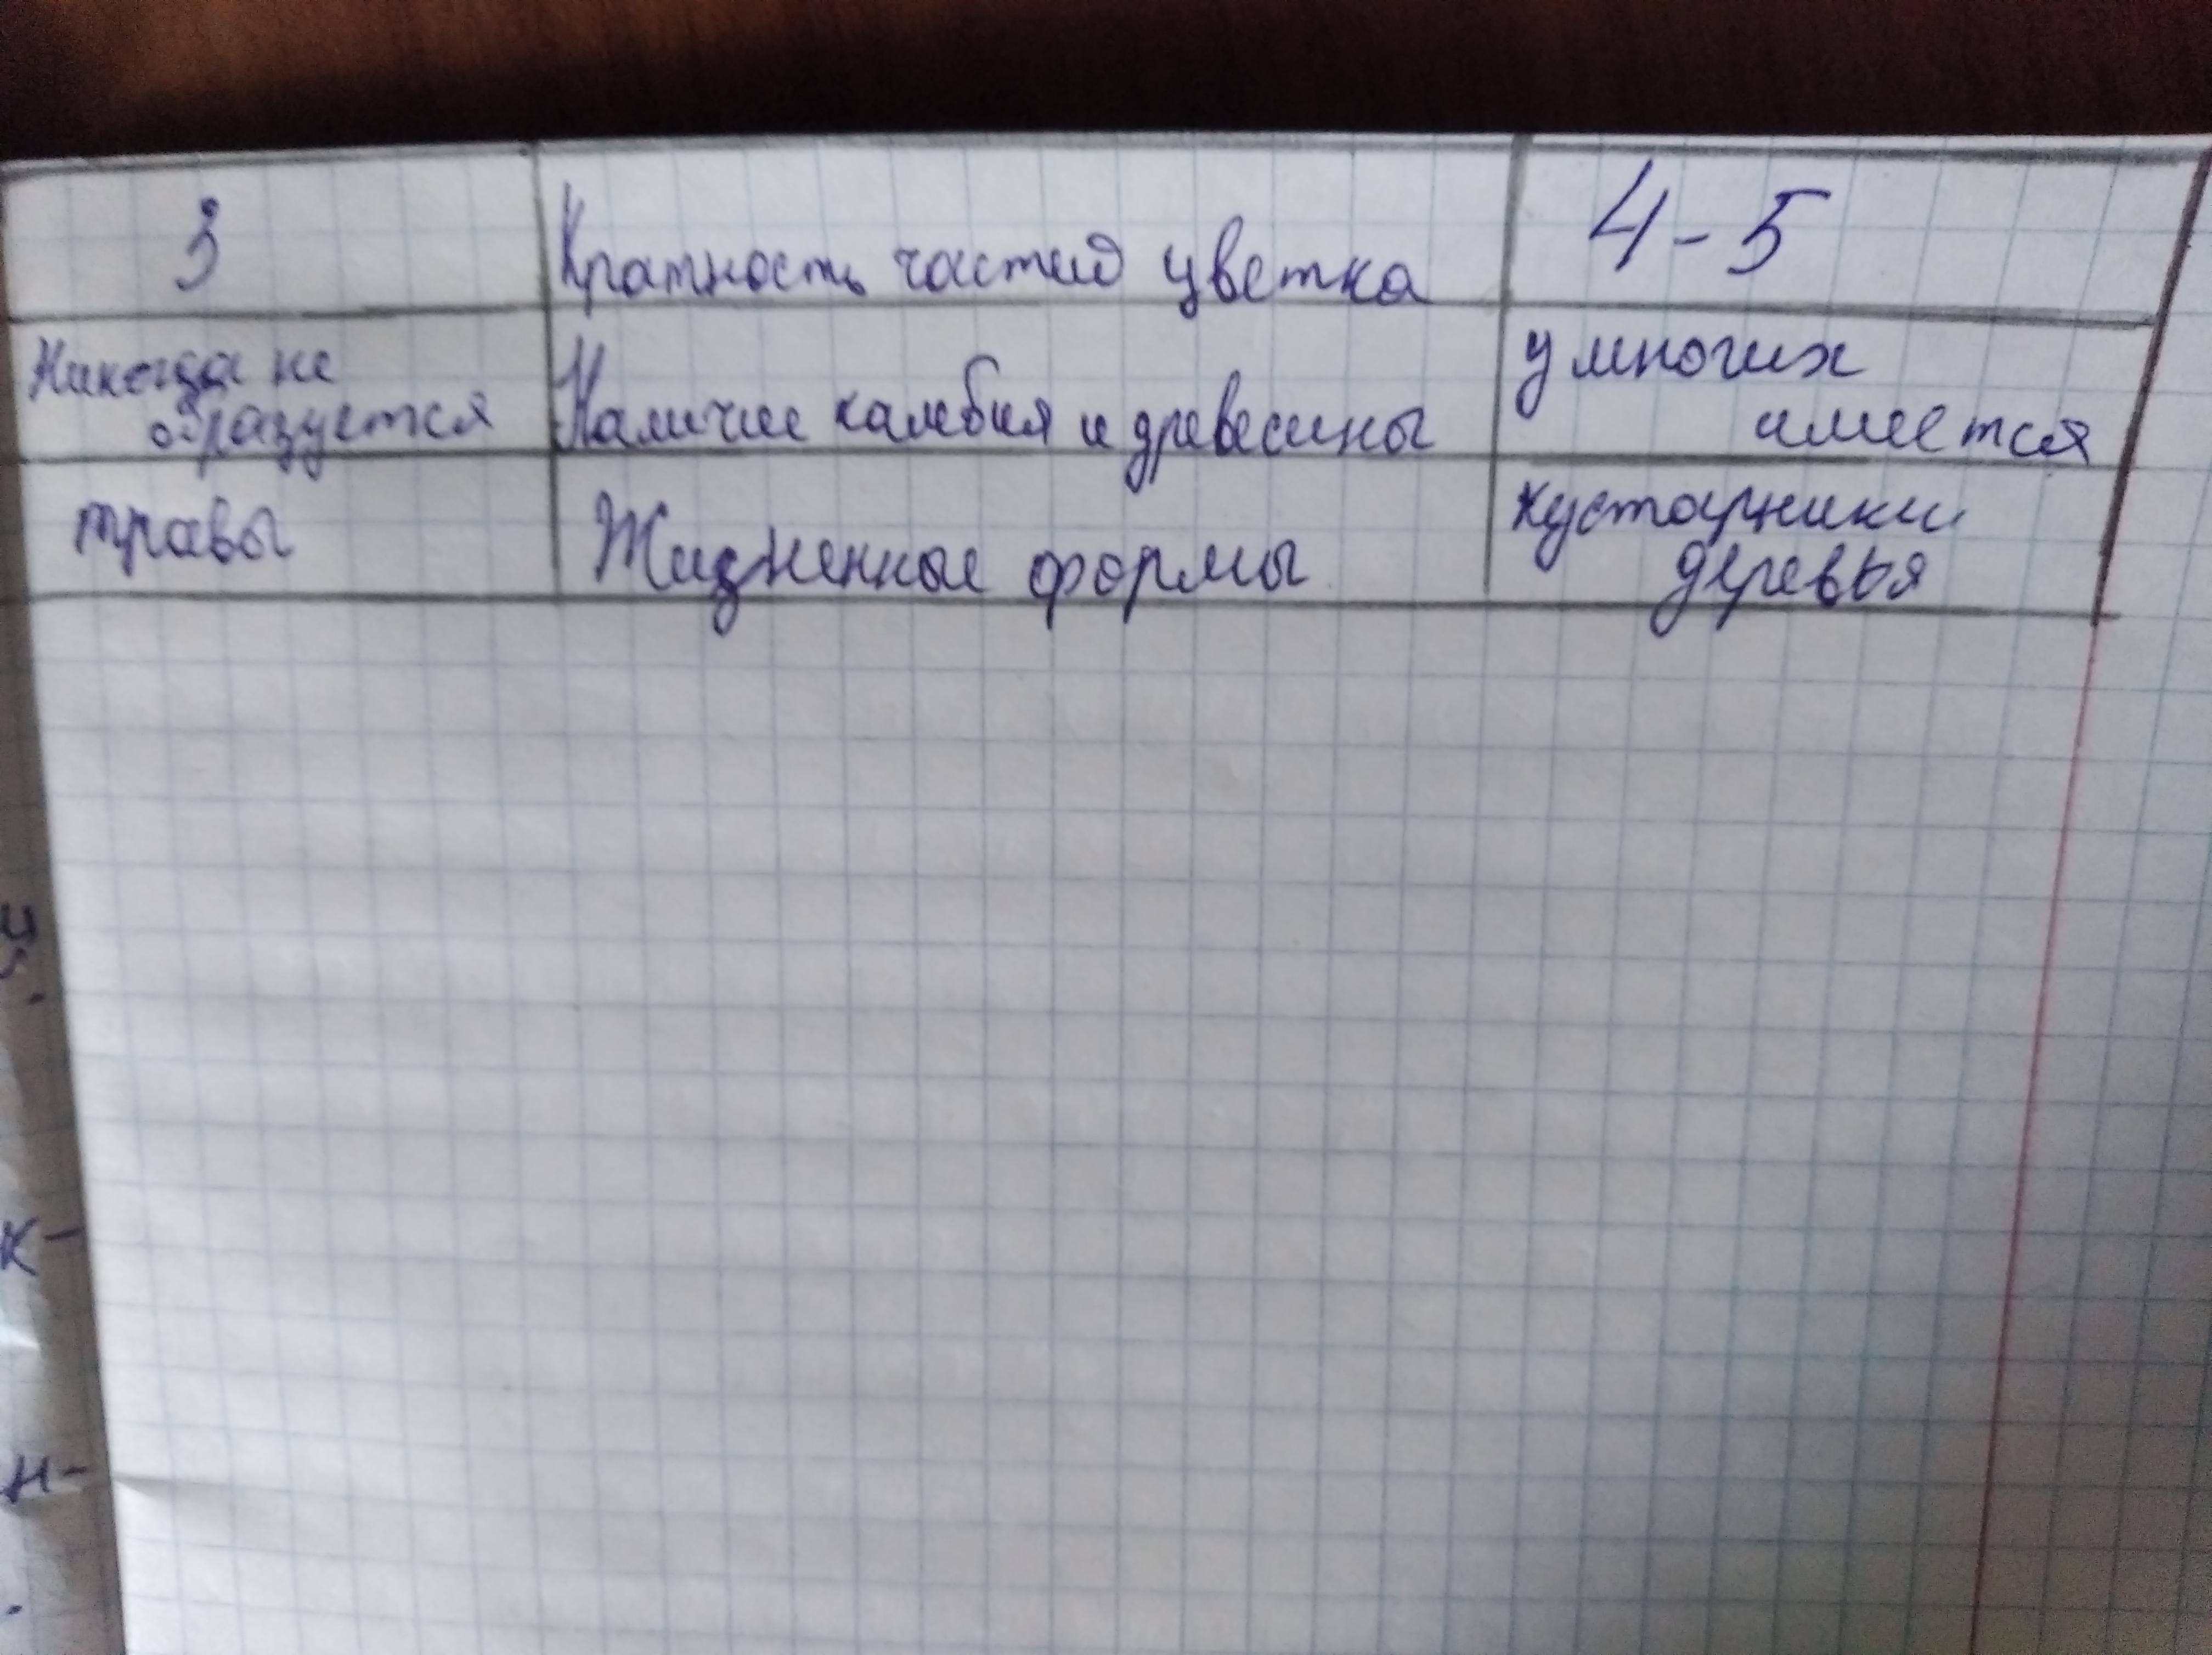 3 Кратность частей цветка 4-5
Никогда не
образуется
Наличие камбия и древесины
у многих
имеется
травы
Жизненные формы
кустарники
деревья
и
к-
н-